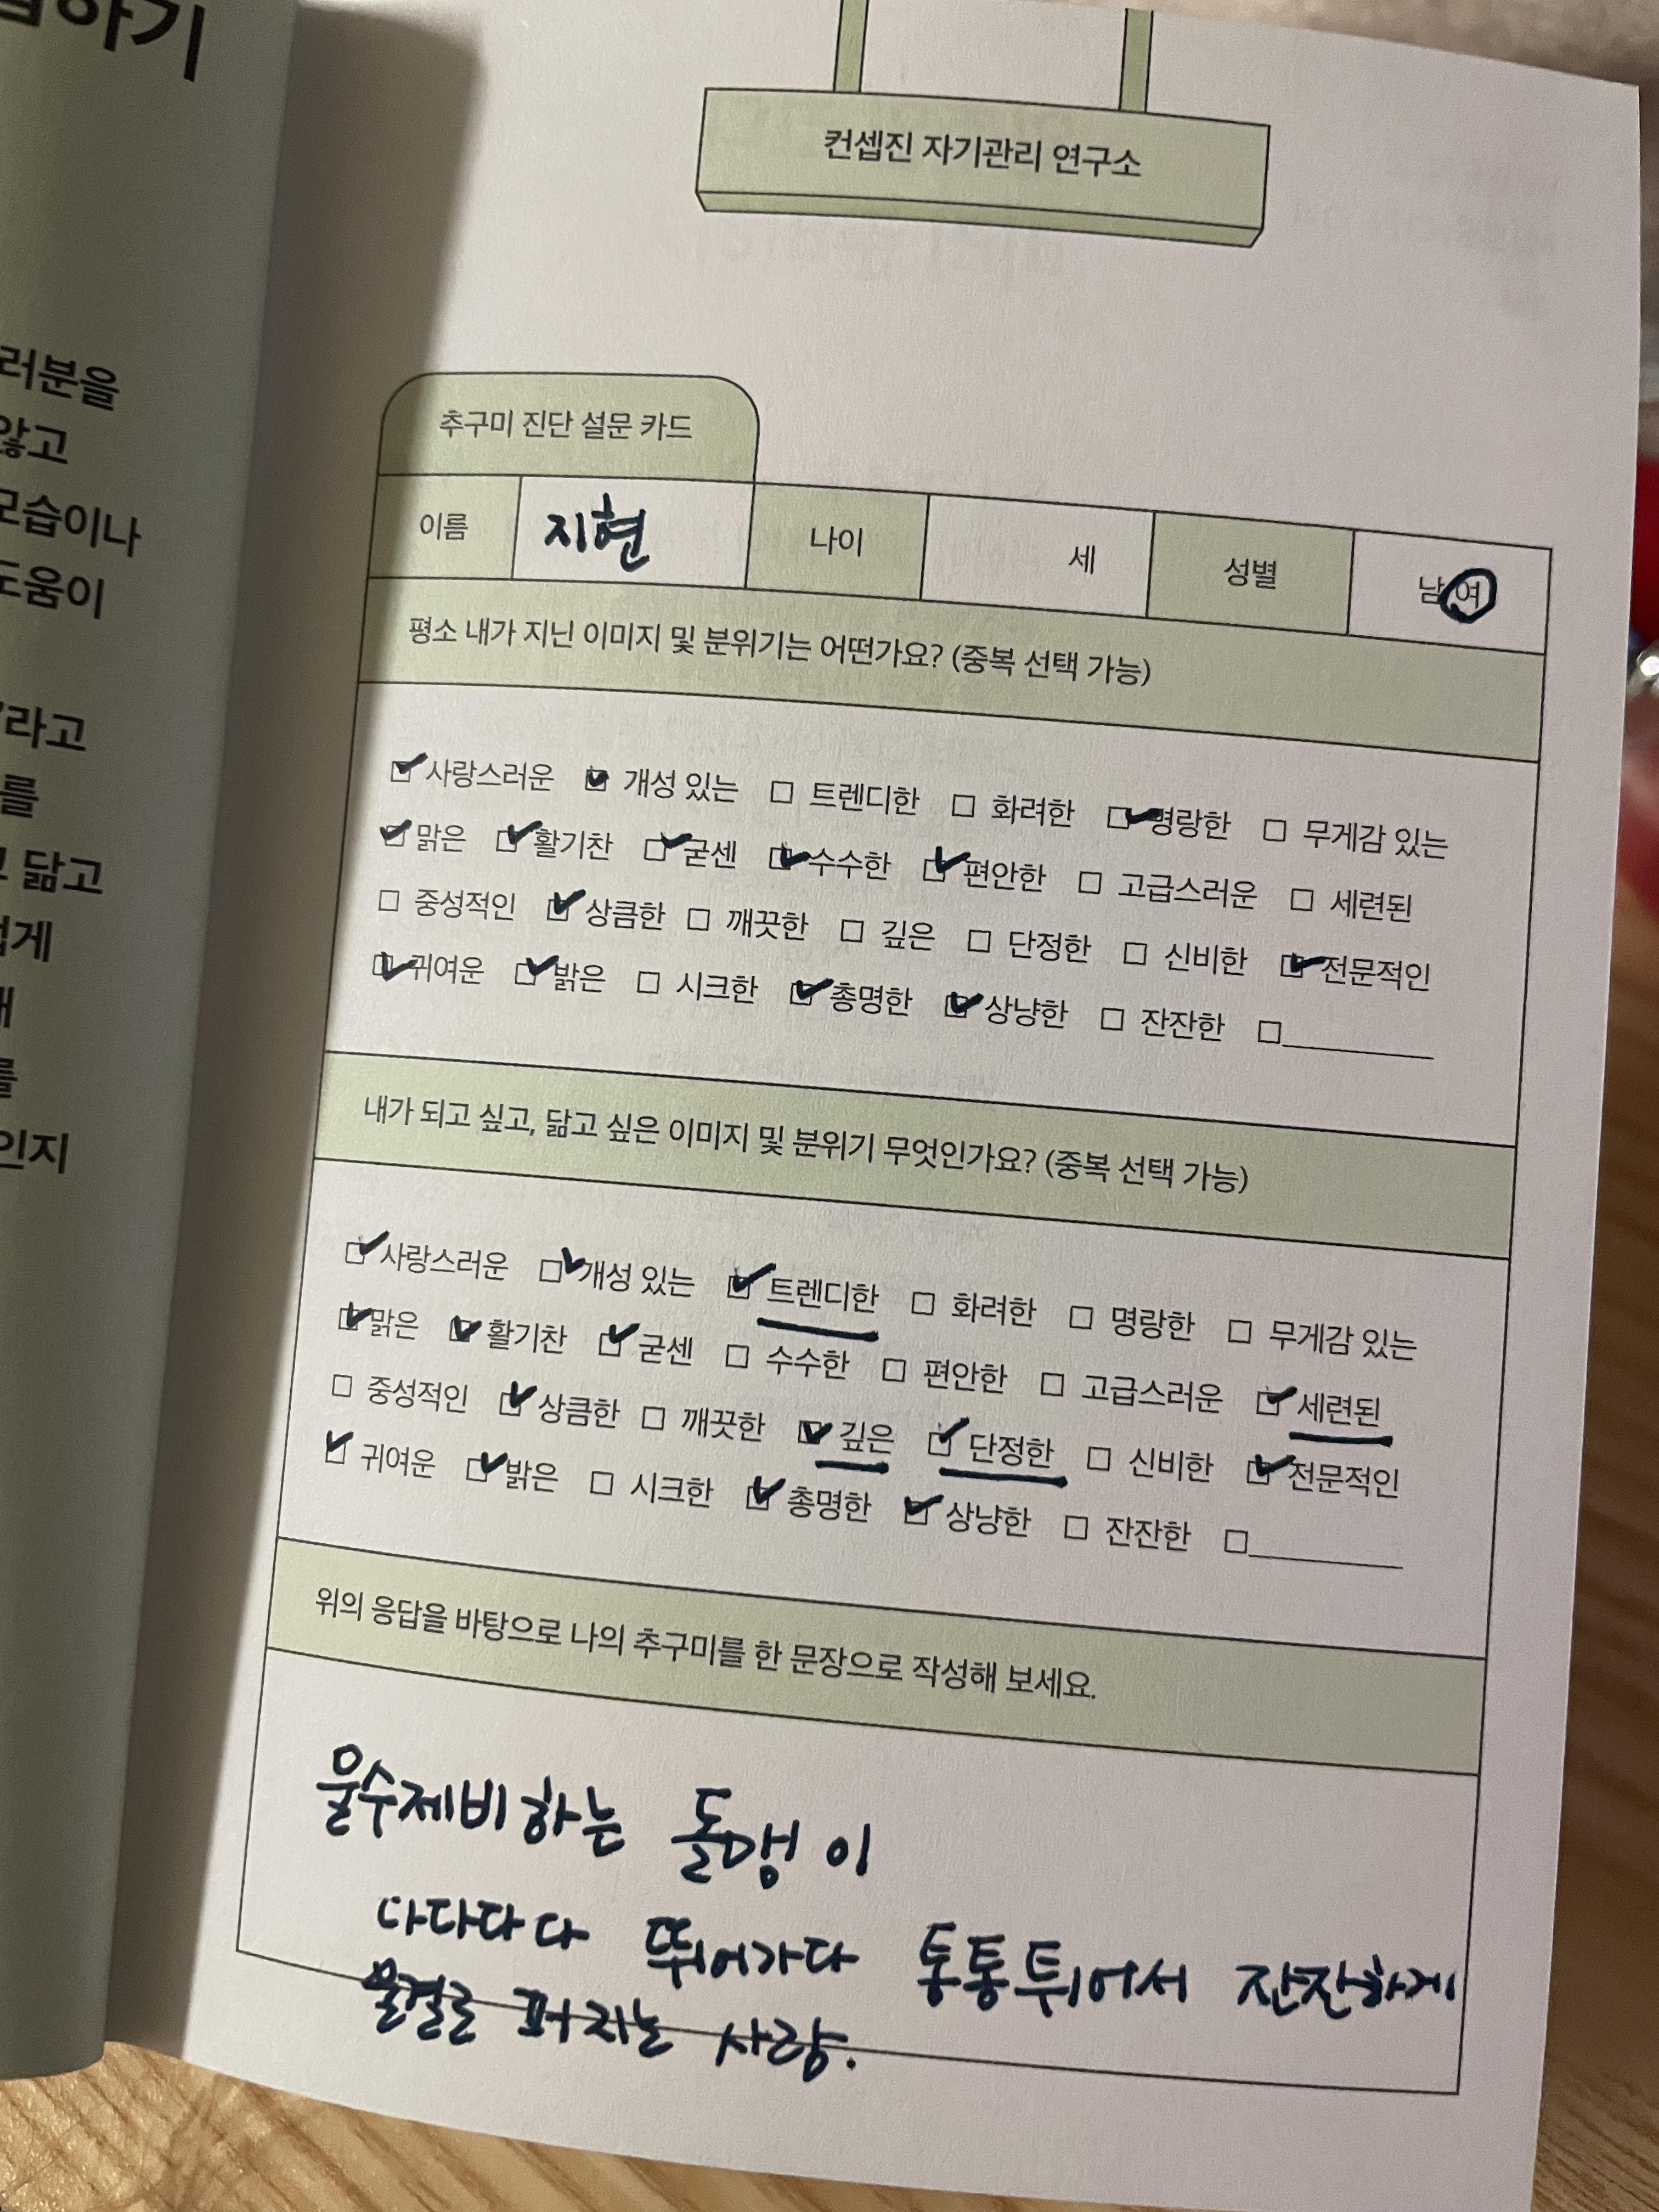 하기
러분을
않고
모습이나
도움이
라고
를
닮고
게
를
인지
컨셉진 자기관리 연구소
추구미 진단 설문 카드
이름 지현 나이 세 성별 남 여
평소 내가 지닌 이미지 및 분위기는 어떤가요? (중복 선택 가능)
사랑스러운 개성 있는 트렌디한 화려한 명랑한 무게감 있는
맑은 활기찬 굳센 수수한 편안한 고급스러운 세련된
중성적인 상큼한 깨끗한 깊은 단정한 신비한 전문적인
귀여운 밝은 시크한 총명한 상냥한 잔잔한
내가 되고 싶고, 닮고 싶은 이미지 및 분위기 무엇인가요? (중복 선택 가능)
사랑스러운 개성 있는 트렌디한 화려한 명랑한 무게감 있는
맑은 활기찬 굳센 수수한 편안한 고급스러운 세련된
중성적인 상큼한 깨끗한 깊은 단정한 신비한 전문적인
귀여운 밝은 시크한 총명한 상냥한 잔잔한
위의 응답을 바탕으로 나의 추구미를 한 문장으로 작성해 보세요.
물수제비하는 돌맹이
다다다다 뛰어가다 통통튀어서 잔잔하게
물결로 퍼지는 사랑.